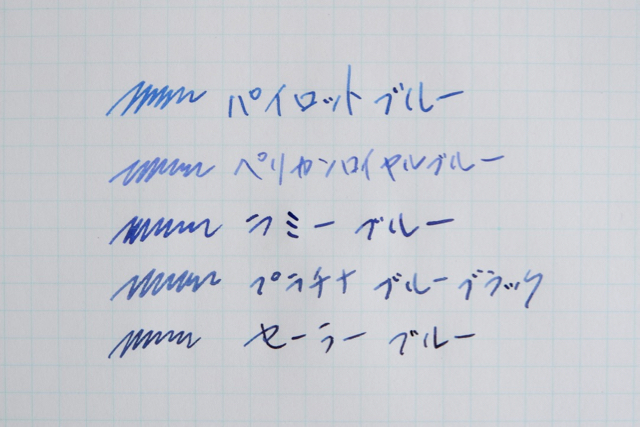 パイロット ブルー
ペリカンロイヤルブルー
ラミー ブルー
プラチナ ブルーブラック
セーラー ブルー